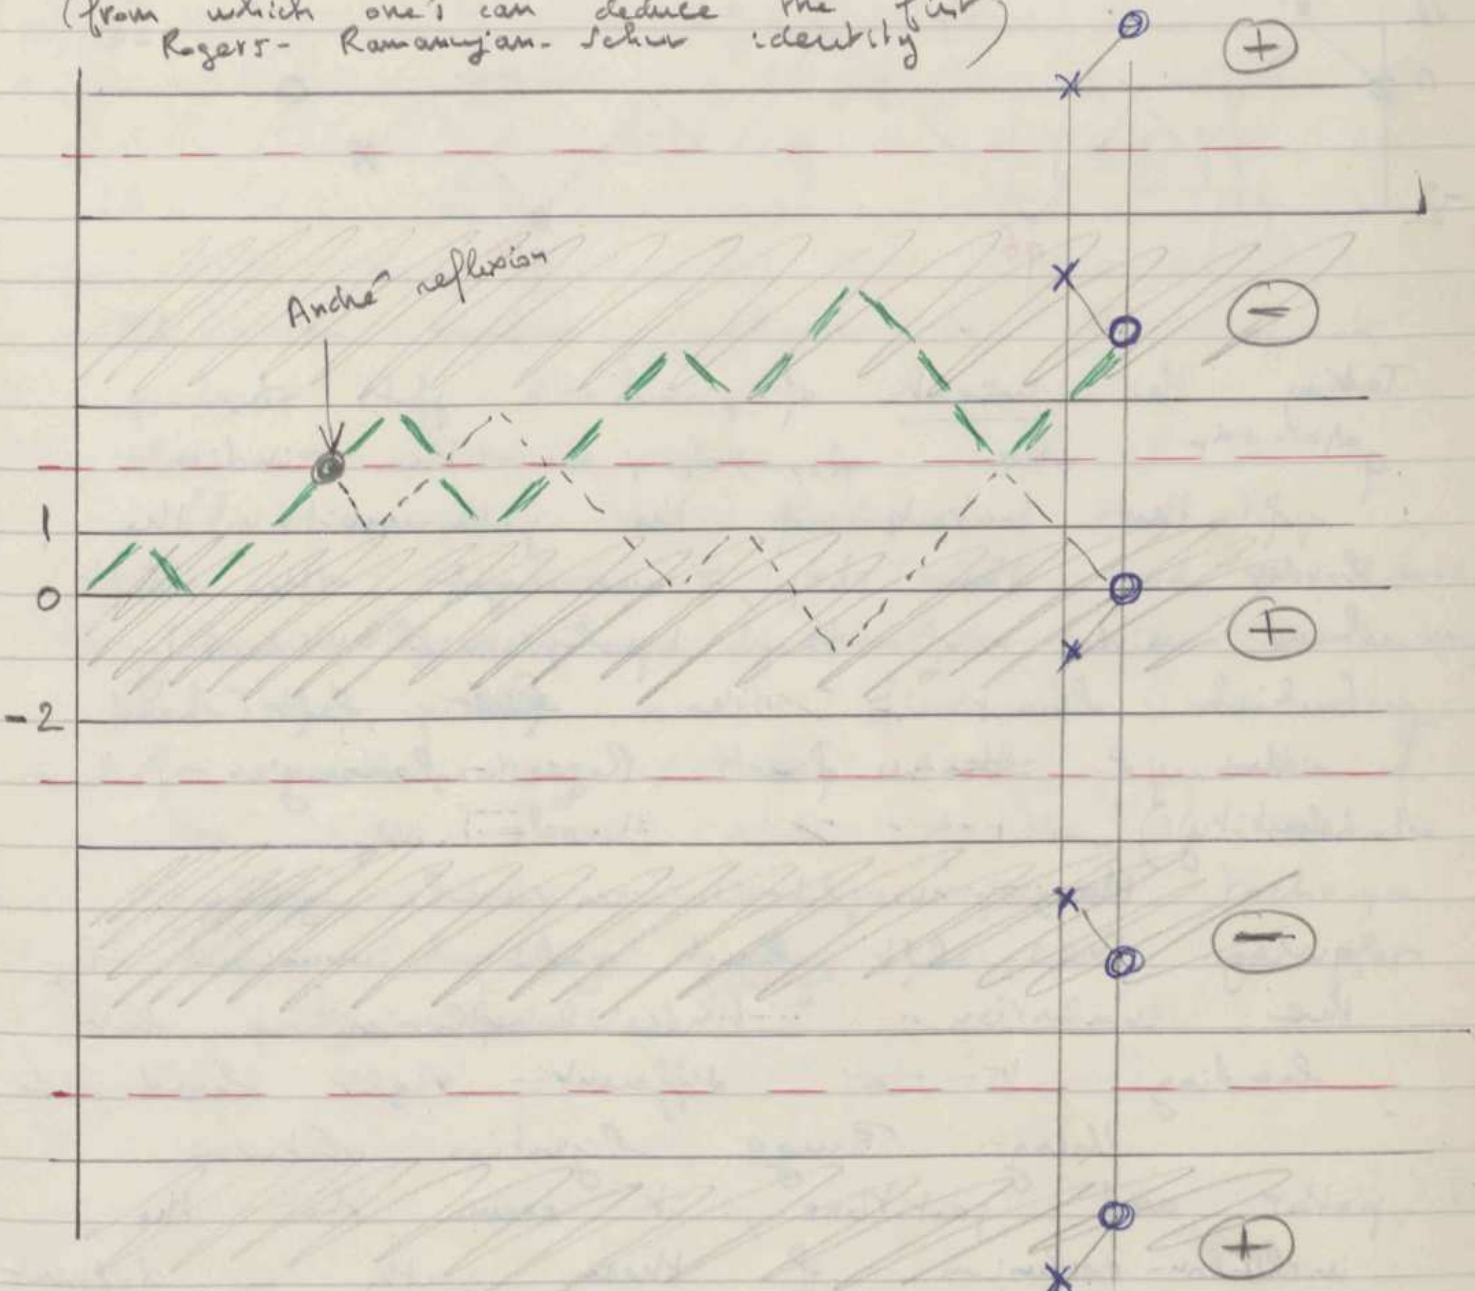 (from which one's can deduce the first
Rogers- Ramanujan- Schur identity)
+
André reflexion
-
1
0
+
-2
-
+